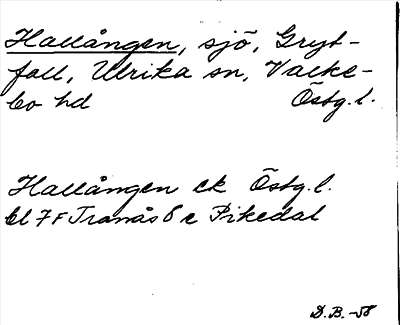 Hallången, sjö, Gryt-
fall, Ulrika sn, Valke-
bo hd Östg.l.
Hallången ek Östg.l.
bl 7 F Tranås 8 e Pikedal
D.B. -58